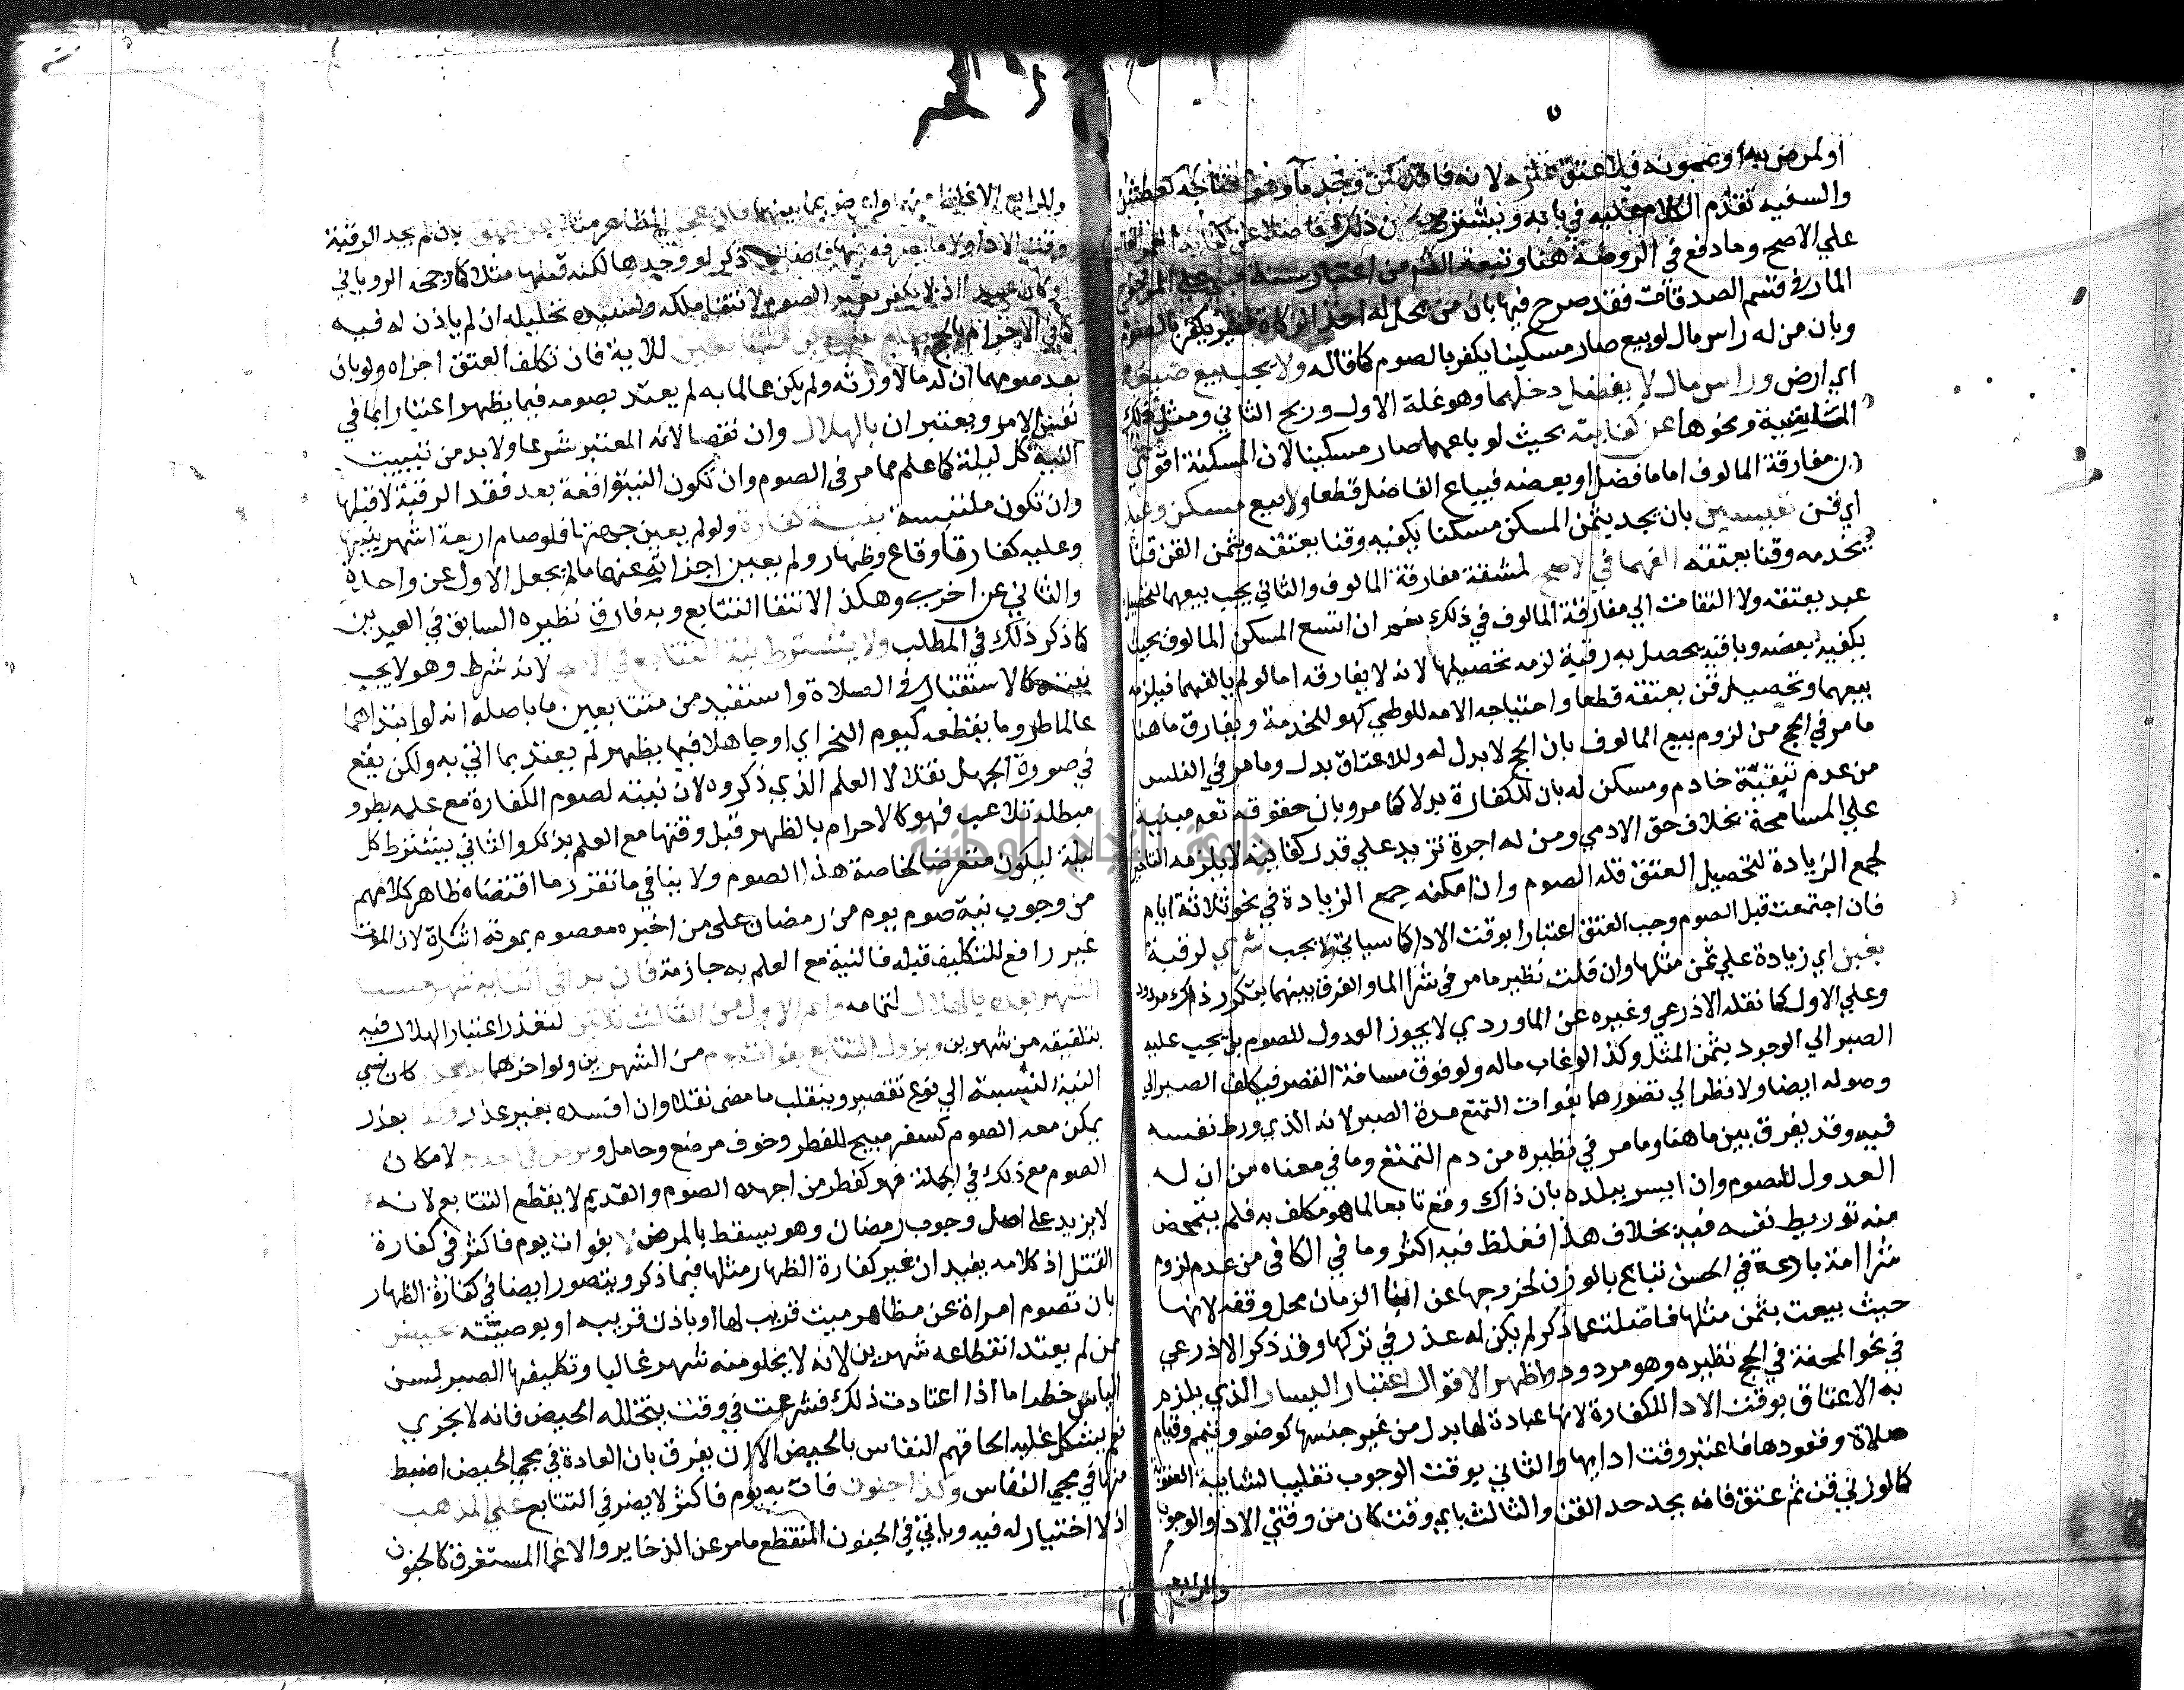 اولمرض به او بممونه فلا عتق يلزمه لانه فاقد كمن وجد ماء وهو يحتاجه لعطش
والسفيه تقدم الكلام عليه في بابه ويشترط كون ذلك فاضلا عن كفاية العمر الغالب
علي الاصح وما دفع في الروضة هنا وتبعه من اعتبار سنة مبني علي المرجوح
المار في قسم الصدقات فقد صرح فيها بان من يحل له اخذ الزكاة فقير يكفر بالصوم
وبان من له راس مال لو بيع صار مسكينا يكفر بالصوم كما قاله ولا يجب بيع ضيعة
اي ارض وراس مال لا يفضل دخلهما وهو غلة الاول وربح الثاني ومثل ذلك
الماشية ونحوها عن كفايته بحيث لو باعهما صار مسكينا لان المسكنة اقوي
من مفارقة المالوف اما ما فضل او بعضه فيباع الفاضل قطعا ولا بيع مسكن وعبد
اي قن نفيسين بان يجد بثمن المسكن مسكنا يكفيه وقنا يعتقه وبثمن القن قنا
يخدمه وقنا يعتقه الفهما في الاصح لمشقة مفارقة المالوف والثاني يجب بيعهما لتحصيل
عبد يعتقه ولا التفات الي مفارقة المالوف في ذلك نعم ان اتسع المسكن المالوف بحيث
يكفيه بعضه وباقيه يحصل به رقبة لزمه تحصيلها لانه لا يفارقه اما لو لم يالفهما فيلزمه
بيعهما وتحصيل قن يعتقه قطعا واحتياجه الامه للوطي كهو للخدمة ويفارق ما هنا
ما مر في الحج من لزوم بيع المالوف بان الحج لا بدل له وللاعتاق بدل وما مر في الفلس
من عدم تبقية خادم ومسكن له بان للكفارة بدلا كما مر وبان حقوقه تعالى مبنية
علي المسامحة بخلاف حق الادمي ومن له اجرة تزيد علي قدر كفايته لا يلزمه التاخير
لجمع الزيادة لتحصيل العتق فله الصوم وان امكنه جمع الزيادة في نحو ثلاثة ايام
فان اجتمعت قبل الصوم وجب العتق اعتبارا بوقت الادا كما سياتي ولا يجب شري لرقبة
بغبن اي زيادة علي ثمن مثلها وان قلت نظير ما مر في شرا الما والفرق بينهما بتكرر ذاك مردود
وعلي الاول كما نقله الاذرعي وغيره عن الماوردي لا يجوز العدول للصوم بل يجب عليه
الصبر الي الوجود بثمن المثل وكذا لو غاب ماله ولو فوق مسافة القصر فيكلف الصبر الي
وصوله ايضا ولا نظر الي تضررهما بفوات التمتع مدة الصبر لانه الذي ورط نفسه
فيه وقد يفرق بين ما هنا وما مر في نظيره من دم التمتع وما في معناه من ان له
العدول للصوم وان ايسر ببلده بان ذاك وقع تابعا لما هو مكلف به فلم يتمحض
منه توريط نفسه فيه بخلاف هذا فغلظ فيه اكثر وما في الكافي من عدم لزوم
شرا امة بارعة في الحسن تباع بالوزن لخروجها عن ابنا الزمان محل وقفه لانها
حيث بيعت بثمن مثلها فاضلة عما ذكر لم يكن له عذر في تركها وقد ذكر الاذرعي
في نحو المحفة في الحج نظيره وهو مردود واظهر الاقوال اعتبار اليسار الذي يلزم
به الاعتاق بوقت الادا للكفارة لانها عبادة لها بدل من غير جنسها كوضو وتيمم وقيام
صلاة وقعودها فاعتبر وقت ادايها والثاني بوقت الوجوب تغليبا لشايبة العقوبة
كما لو زني قن ثم عتق فانه يحد حد القن والثالث باي وقت كان من وقتي الادا والوجوب
والرابع
وللرابع الاغلظ منهما واعرض عما بينهما فان عجز المظاهر مثلا عن عتق بان لم يجد الرقبة
وقت الادا ولا ما يصرفه فيها فاضلا ذكر لو وجدها لكنه قتلها مثلا كما رجحه الروياني
وكان عبدا اذ لا يكفر بغير الصوم لانتفا ملكه وليس لسيده تحليله ان لم ياذن له فيه
كما في الاحرام بالحج صام شهرين متتابعين للاية فان تكلف العتق اجزاه ولو بان
بعد صومهما ان له مالا ورثه ولم يكن عالما به لم يعتد بصومه فيما يظهر اعتبارا بما في
نفس الامر ويعتبران بالهلال وان نقصا لانه المعتبر شرعا ولا بد من تبييت
النية كل ليلة كما علم مما مر في الصوم وان تكون النية واقعة بعد فقد الرقبة لا قبلها
وان تكون ملتبسة بنية كفارة ولو لم يعين جهتها فلو صام اربعة اشهر بنيتها
وعليه كفارة وقاع وظهار ولم يعين اجزاته عنهما ما لم يجعل الاول عن واحدة
والثاني عن اخري وهكذا لانتفا التتابع وبه فارق نظيره السابق في العبدين
كما ذكر ذلك في المطلب ولا يشترط نية التتابع في الاصح لانه شرط وهو لا يجب
نيته كالاستقبال في الصلاة واستفيد من متتابعين ما باصله انه لو ابتداهما
عالما طرو ما يقطعه كيوم النحر اي او جاهلا فيما يظهر لم يعتد بما اتي به ولكن يقع
في صورة الجهل نفلا لا العلم الذي ذكروه لان نيته لصوم الكفارة مع علمه بطرو
مبطله تلاعب فهو كالاحرام بالظهر قبل وقتها مع العلم بذلك والثاني يشترط كل
ليلة ليكون متعرضا لخاصة هذا الصوم ولا ينافي ما تقرر ما اقتضاه ظاهر كلامهم
من وجوب نية صوم يوم من رمضان علي من اخبره معصوم بموته اثناه لان الموت
غير رافع للتكليف قبله فالنية مع العلم به جازمة فان بدا في اثنا شهر حسب
الشهر بعده بالهلال لتمامه واتم الاول من الثالث ثلاثين لتعذر اعتبار الهلال فيه
بتلفيقه من شهرين ويزول التتابع بفوات يوم من الشهرين ولو اخرهما بلا عذر كان نسي
النية لنسبته الي نوع تقصير وينقلب ما مضي نفلا وان افسده بغير عذر وكذا بعذر
يمكن معه الصوم كسفر مبيح للفطر وخوف مرضع وحامل ومرض في الجديد لامكان
الصوم مع ذلك في الجملة فهو كفطر من اجهده الصوم والقديم لا يقطع التتابع لانه
لا يزيد علي اصل وجوب رمضان وهو يسقط بالمرض لا بفوات يوم فاكثر في كفارة
القتل اذ كلامه يفيد ان غير كفارة الظهار مثلها فيما ذكر ويتصور ايضا في كفارة الظهار
بان تصوم امراة عن مظاهر ميت قريب لها او باذن قريبه او بوصيته بحيض
ممن لم يعتد انقطاعه شهرين لانه لا يخلو منه شهر غالبا وتكليفها الصبر لسن
الياس خطر اما اذا اعتادت ذلك فشرعت في وقت يتخلله الحيض فانه لا يجزي
نعم يشكل عليه الحاقهم النفاس بالحيض الا ان يفرق بان العادة في مجي الحيض اضبط
منها في مجي النفاس وكذا جنون فات به يوم فاكثر لا يضر في التتابع علي المذهب
اذ لا اختيار له فيه وياتي في الجنون المتقطع ما مر عن الذخاير والاغما المستغرق كالجنون
جامعة النجاح الوطنية